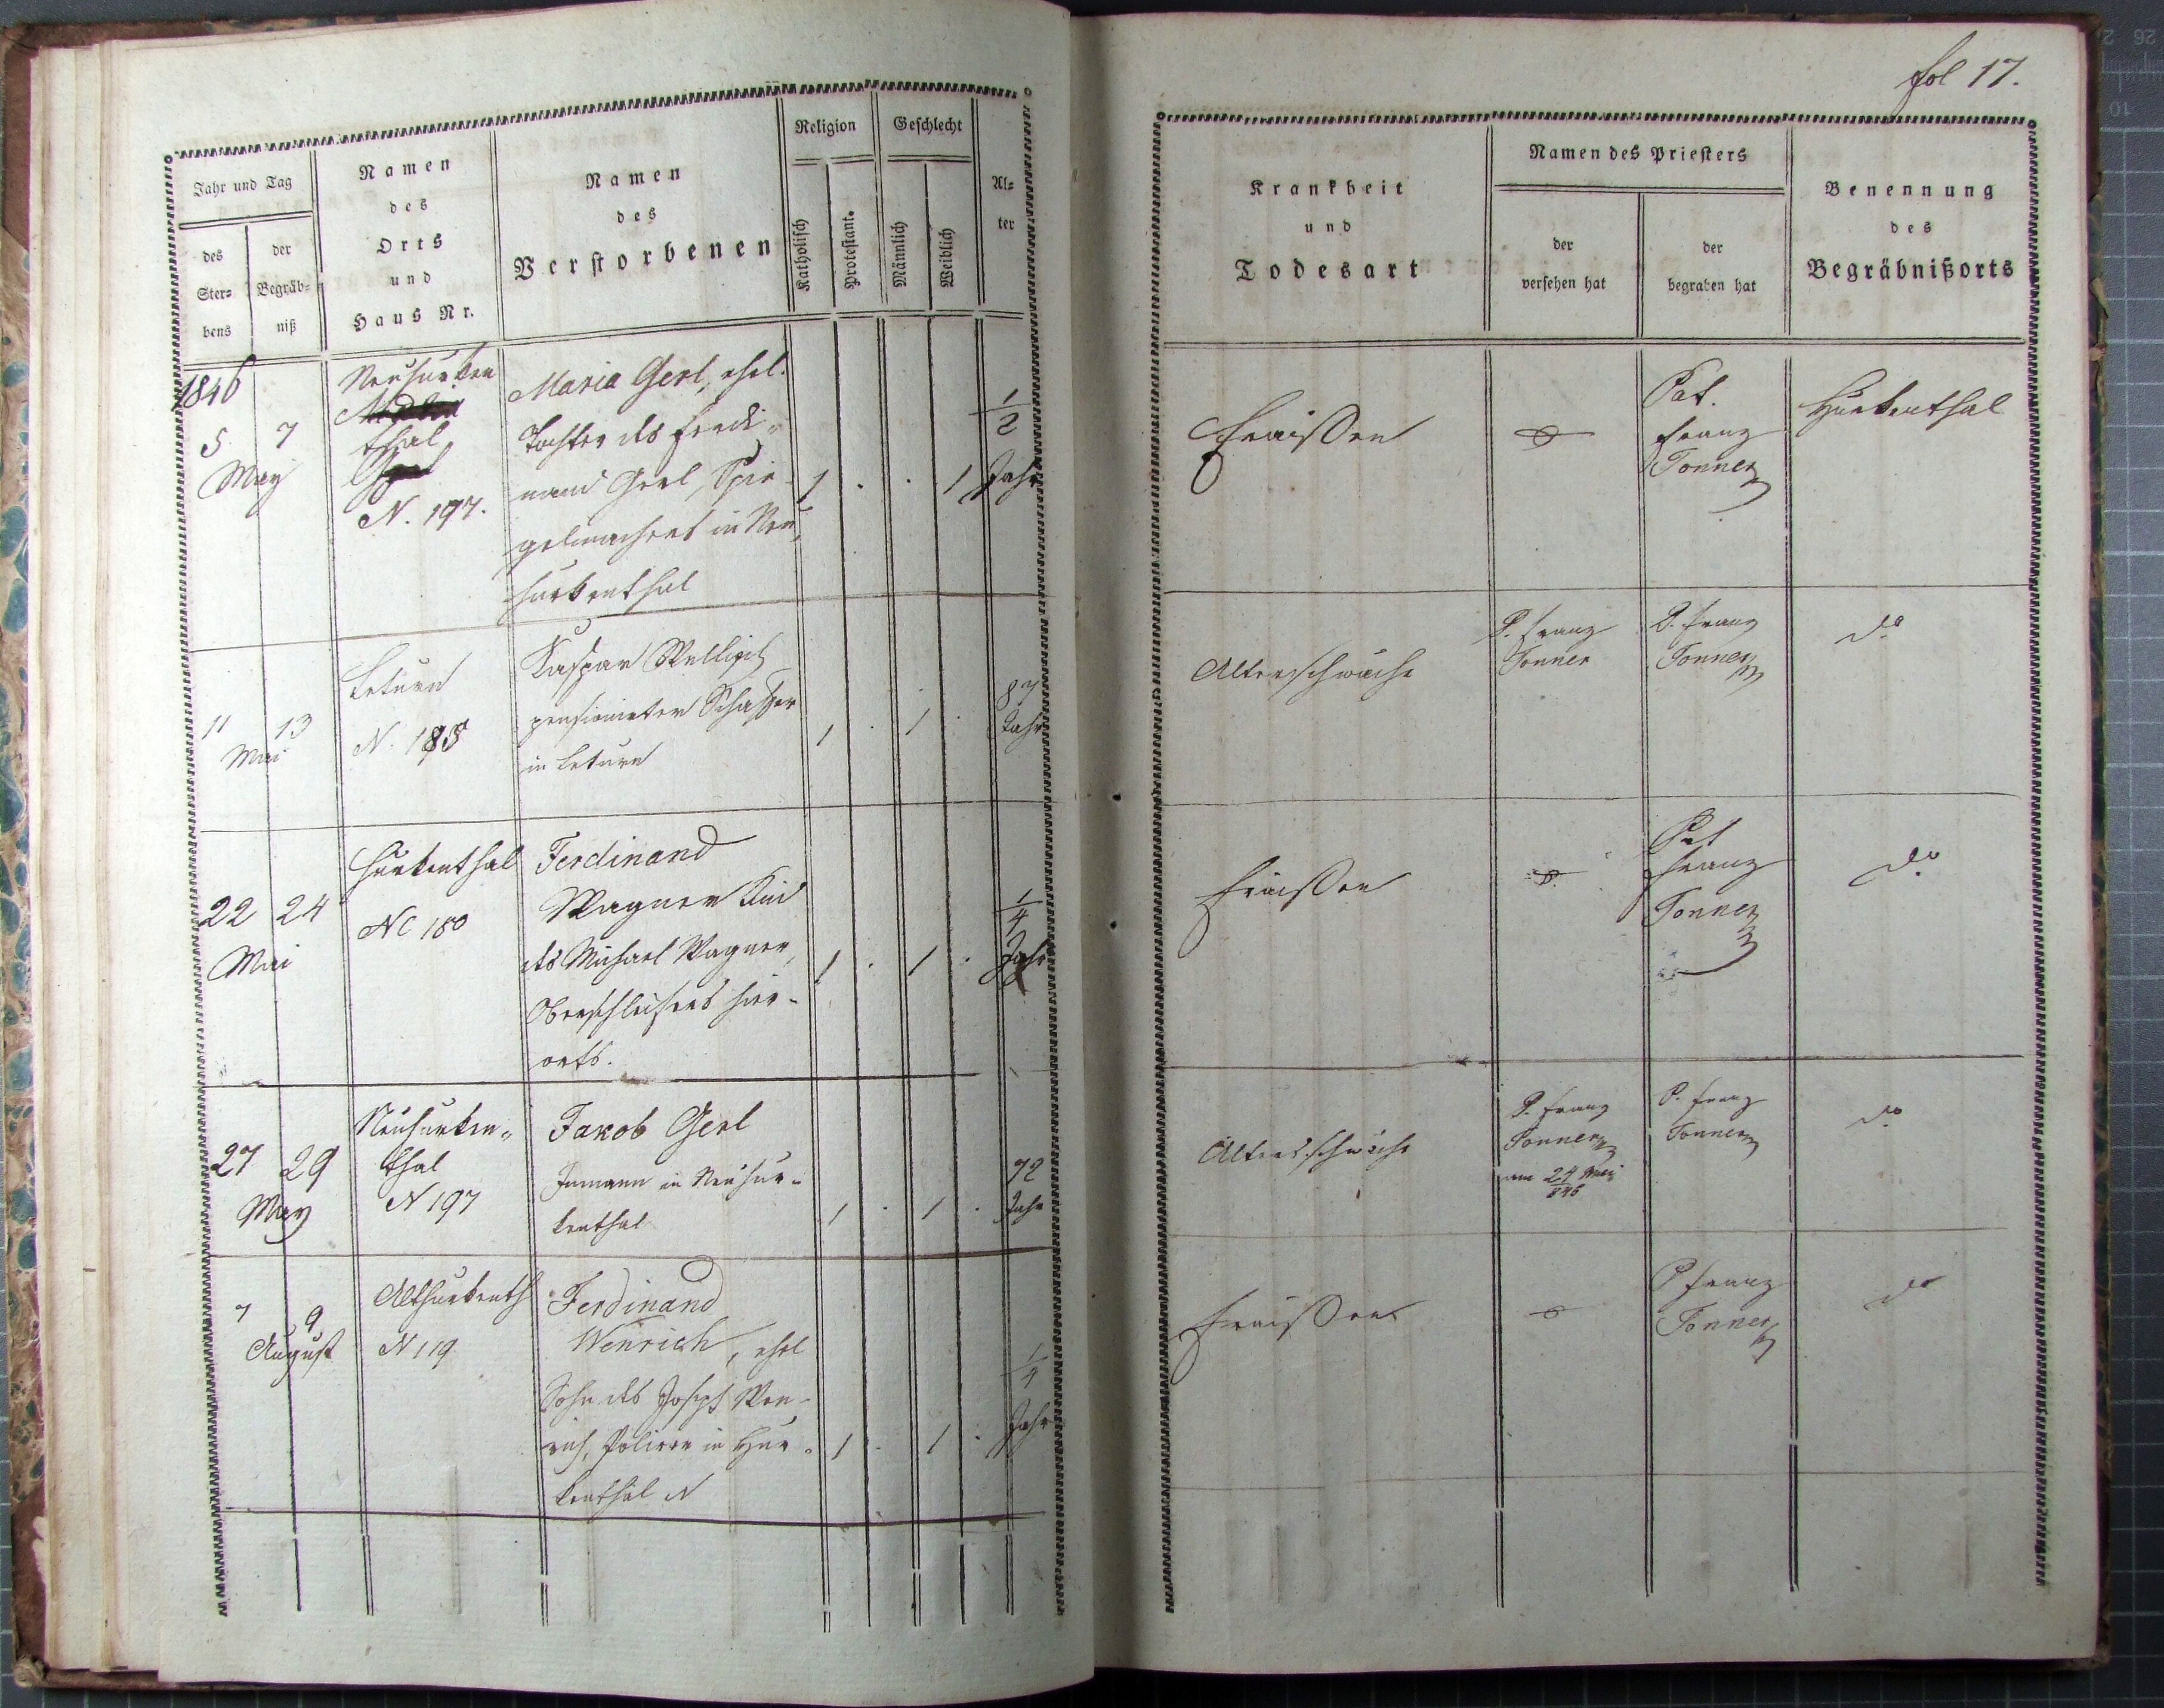 fol 17.
Jahr und Tag
des Ster= bens
der Begräb= niß
Namen
des
Orts
und
Haus Nr.
Namen
des
Verstorbenen
Religion
Katholisch
Protestant.
Geschlecht
Männlich
Weiblich
Al=
ter
Krankheit
und
Todesart
Namen des Priesters
der
versehen hat
der
begraben hat
Benennung
des
Begräbnißorts
1846
5 7
May
Neuhurken
thal
N. 197.
Maria Gerl, ehel.
Tochter des Ferdi-
nand Gerl, Spie-
gelmachers in Neu-
hurkenthal
1 . . 1
1/2
Jahr
Fraissen
Pat.
Franz
Tonner
Hurkenthal
11 13
Mai
Leturn
N. 185
Kaspar Wellisch
pensionirter Schaffer
in Leturn
1 . 1 .
87
Jahr
Altersschwäche
P. Franz
Tonner
P. Franz
Tonner
do
22 24
Mai
Hurkenthal
NC 180
Ferdinand
Wagner Kind
des Michael Wagner,
Oberschleifers hier-
orts.
1 . 1 .
1/4
Jahr
Fraissen
Pat
Franz
Tonner
do
27 29
May
Neuhurken-
thal
N 197
Jakob Gerl
Inmann in Neuhur-
kenthal
1 . 1 .
72
Jahr
Altersschwäche
P. Franz
Tonner
am 24 Mai
846
P. Franz
Tonner
do
7 9
August
Althurkenth
N 119
Ferdinand
Wenrich, ehel
Sohn des Joseph Wen-
rich, Polirer in Hur-
kenthal N
1 . 1 .
1/4
Jahr
Fraissen
P Franz
Tonner
do